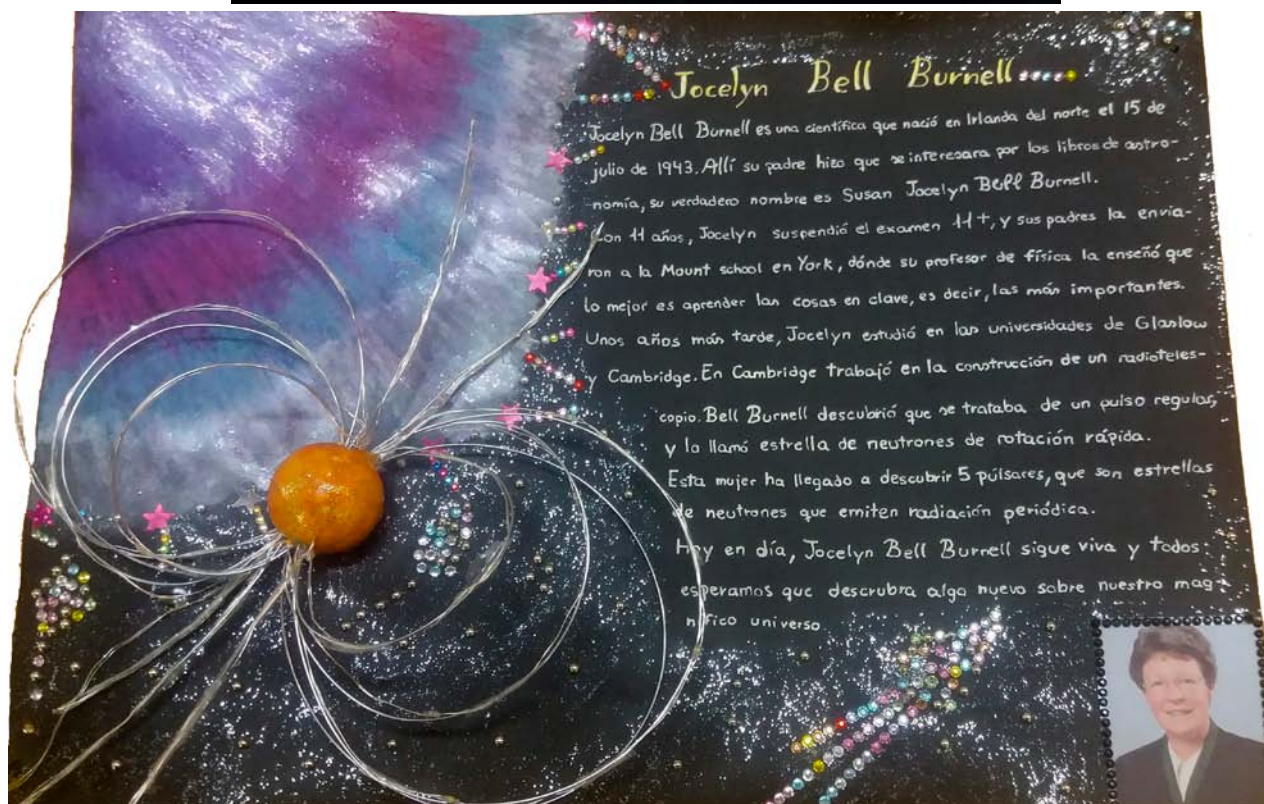 Jocelyn Bell Burnell
Jocelyn Bell Burnell es una científica que nació en Irlanda del norte el 15 de
julio de 1943. Allí su padre hizo que se interesara por los libros de astro-
nomía, su verdadero nombre es Susan Jocelyn Bell Burnell.
Con 11 años, Jocelyn suspendió el examen 11+, y sus padres la envia-
ron a la Mount school en York, dónde su profesor de física la enseñó que
lo mejor es aprender las cosas en clave, es decir, las más importantes.
Unos años más tarde, Jocelyn estudió en las universidades de Glaslow
y Cambridge. En Cambridge trabajó en la construcción de un radioteles-
copio. Bell Burnell descubrió que se trataba de un pulso regular,
y lo llamó estrella de neutrones de rotación rápida.
Esta mujer ha llegado a descubrir 5 púlsares, que son estrellas
de neutrones que emiten radiación periódica.
Hoy en día, Jocelyn Bell Burnell sigue viva y todos
esperamos que descrubra algo nuevo sobre nuestro mag-
nífico universo